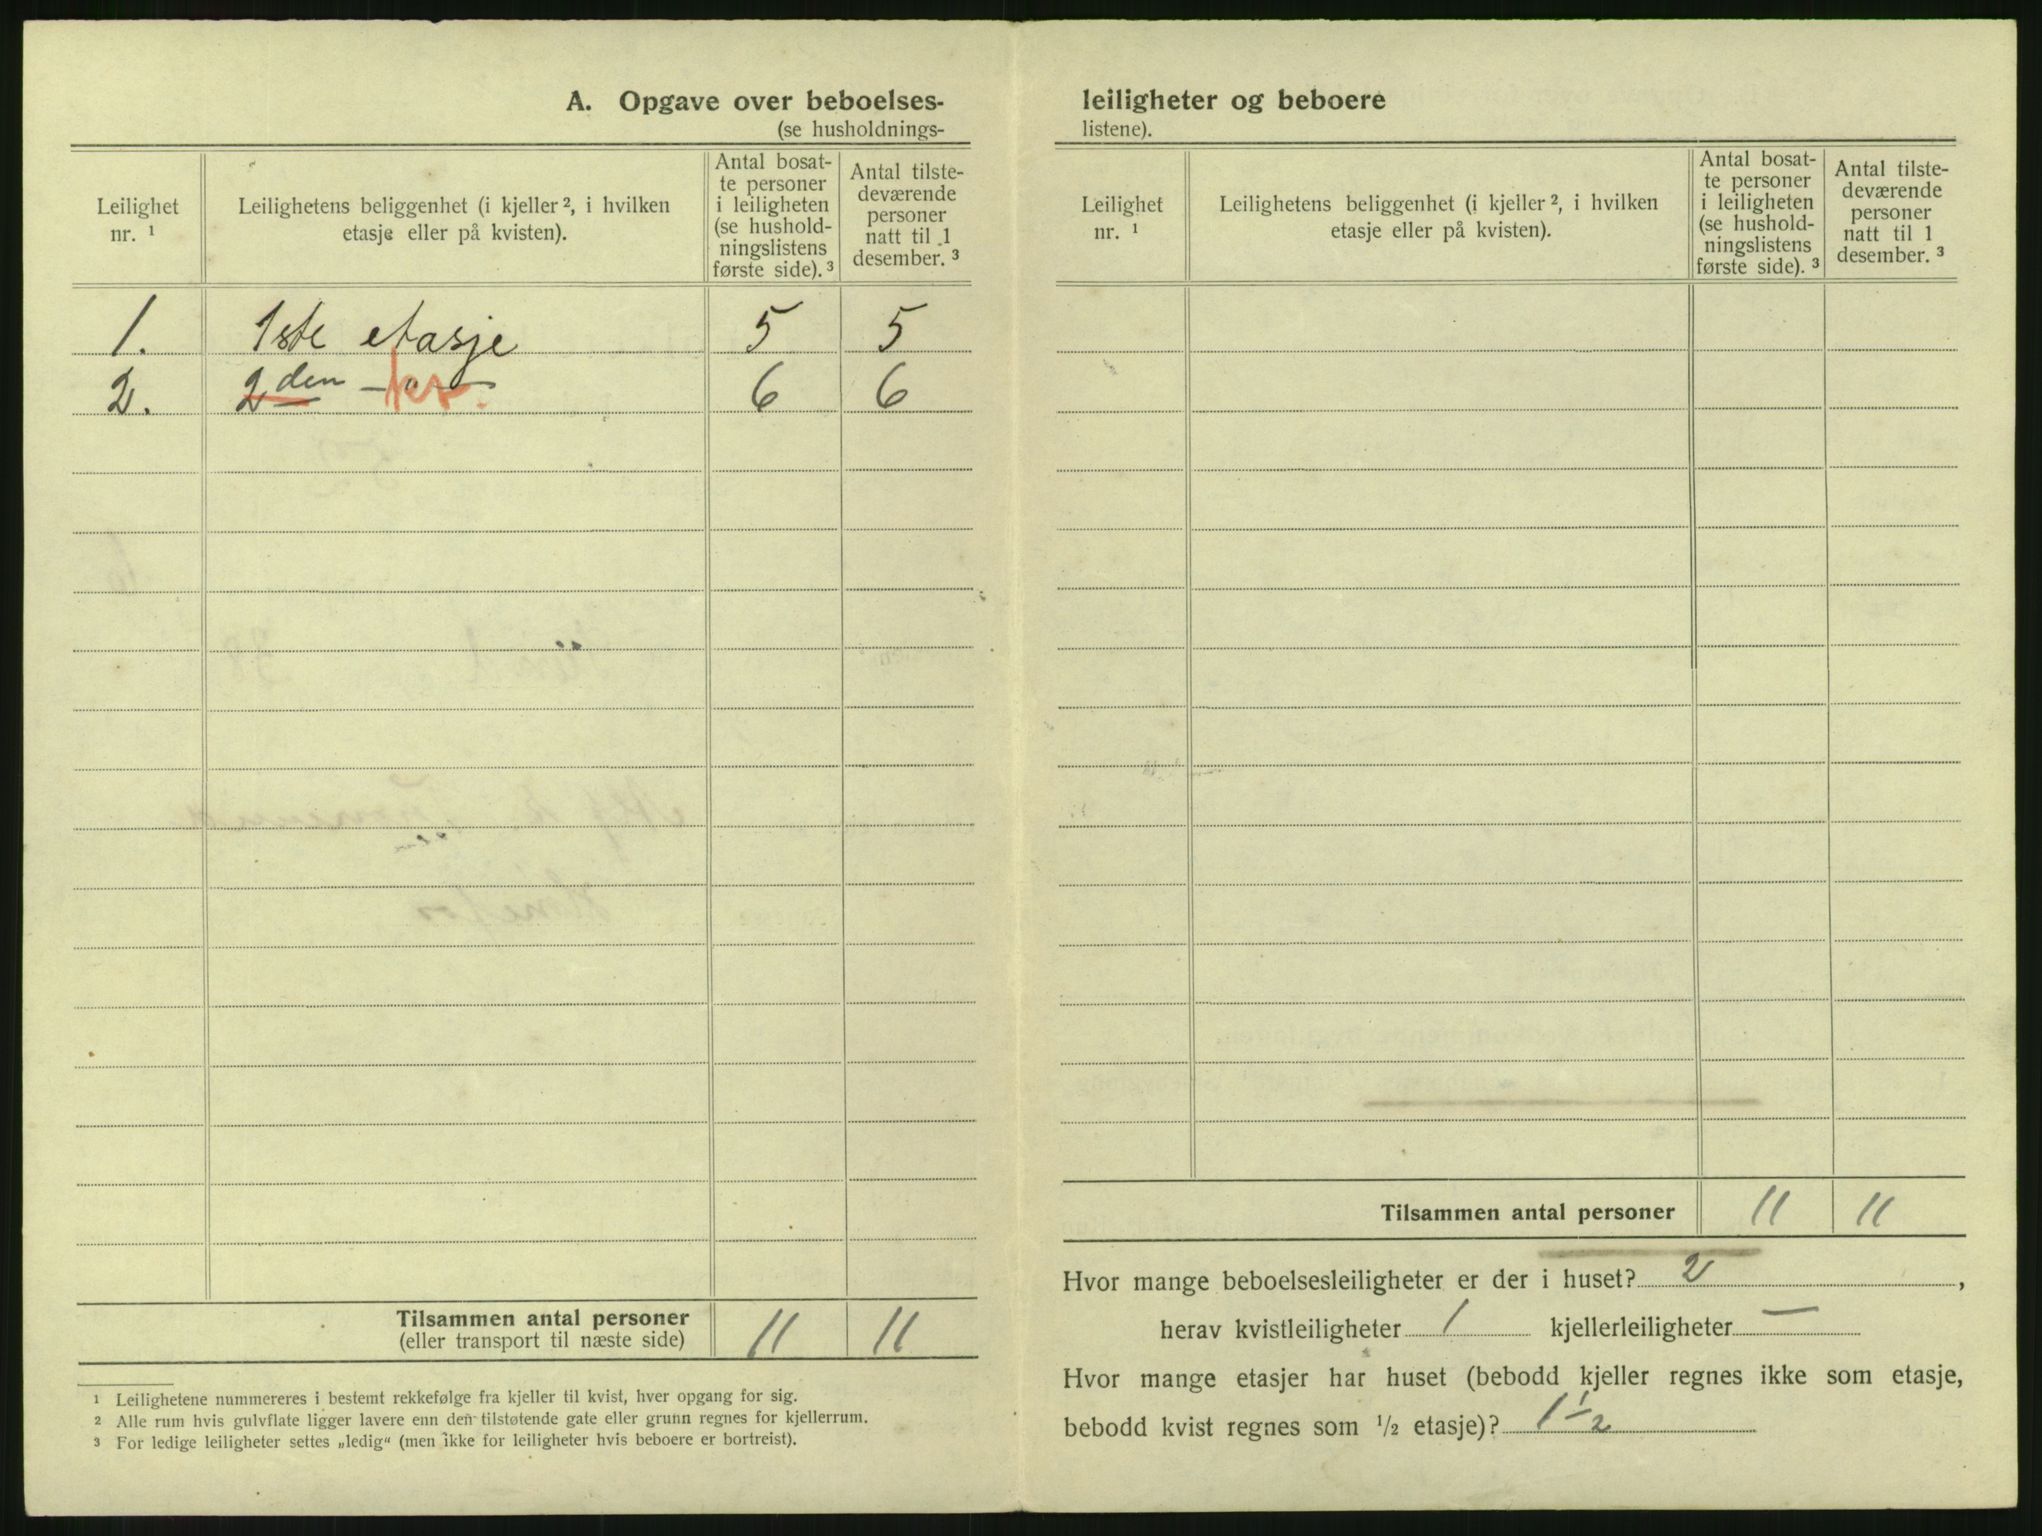 A. Opgave over beboelses-
(se husholdnings-
Leilighet nr. ¹
Leilighetens beliggenhet (i kjeller ², i hvilken etasje eller på kvisten).
Antal bosat-
te personer
i leiligheten
(se hushold-
ningslistens
første side). ³
Antal tilste-
deværende
personer
natt til 1
desember. ³
1. 1ste etasje 5 5
2. 2den —"— kv. 6 6
Tilsammen antal personer 11 11
(eller transport til næste side)
¹ Leilighetene nummereres i bestemt rekkefølge fra kjeller til kvist, hver opgang for sig.
² Alle rum hvis gulvflate ligger lavere enn den tilstøtende gate eller grunn regnes for kjellerrum.
³ For ledige leiligheter settes „ledig“ (men ikke for leiligheter hvis beboere er bortreist).
leiligheter og beboere
listene).
Leilighet nr. ¹
Leilighetens beliggenhet (i kjeller ², i hvilken etasje eller på kvisten).
Antal bosat-
te personer
i leiligheten
(se hushold-
ningslistens
første side). ³
Antal tilste-
deværende
personer
natt til 1
desember. ³
Tilsammen antal personer 11 11
Hvor mange beboelsesleiligheter er der i huset? 2,
herav kvistleiligheter 1 kjellerleiligheter —
Hvor mange etasjer har huset (bebodd kjeller regnes ikke som etasje,
bebodd kvist regnes som ½ etasje)? 1½